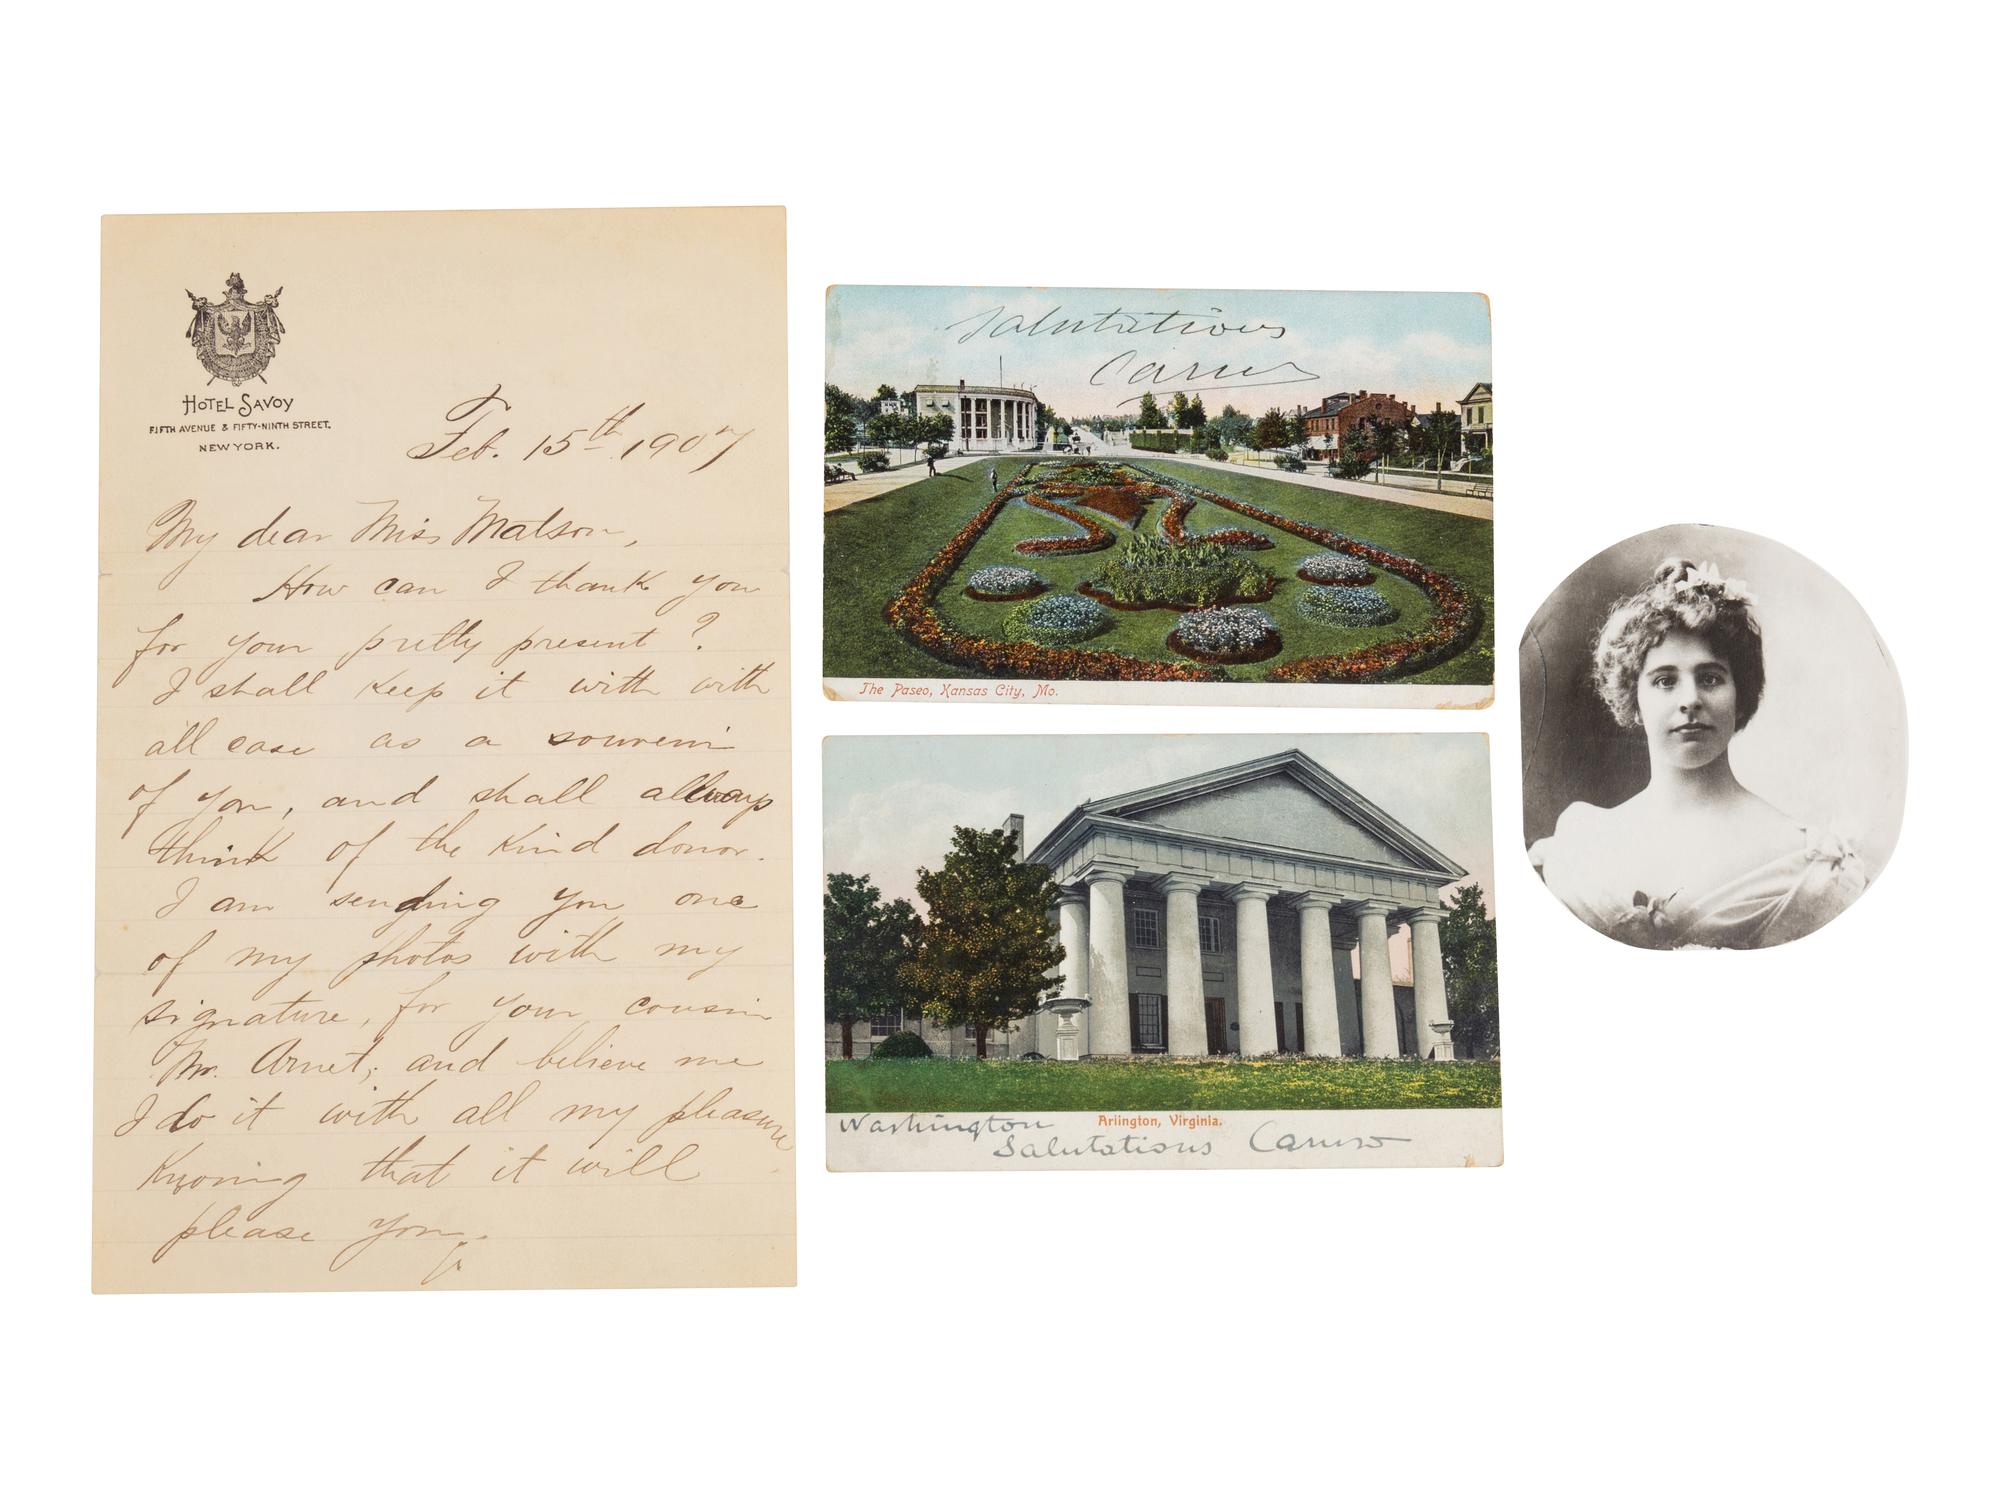 HOTEL SAVOY
FIFTH AVENUE & FIFTY-NINTH STREET.
NEW YORK.
Feb. 15th 1907
My dear Miss Matson,
How can I thank you
for your pretty present?
I shall keep it with with
all case as a souvenir
of you, and shall always
think of the kind donor.
I am sending you one
of my photos with my
signature, for your cousin
Mr. Arnet, and believe me
I do it with all my pleasure
Knowing that it will
please you.
Salutations
Caruso
The Paseo, Kansas City, Mo.
Arlington, Virginia.
Washington
Salutations Caruso